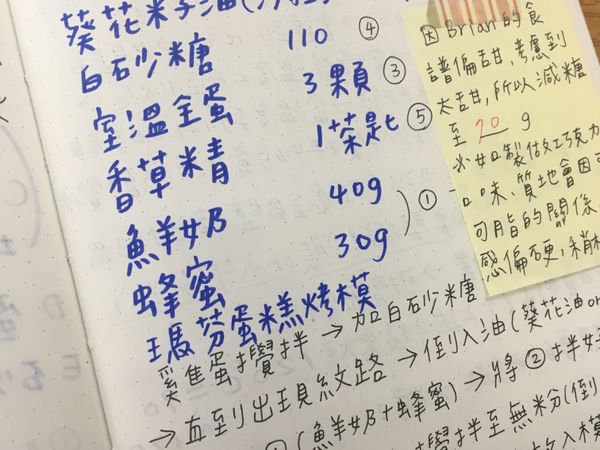 葵花米子油
白砂糖 110 ④
室溫全蛋 3顆 ③
香草精 1茶匙t ⑤
鮮奶 40g
蜂蜜 30g ①
瑪芬蛋糕烤模
因 Brian的食
譜偏甜,考慮到
太甜,所以減糖
至 70 g
如製做巧克力
口味,質地會因可
可脂的關係
感偏硬,稍
雞蛋攪拌→加白砂糖
→直到出現紋路→倒入油(葵花油or
(鮮奶+蜂蜜)→將②拌
攪拌至無粉(倒
放入模